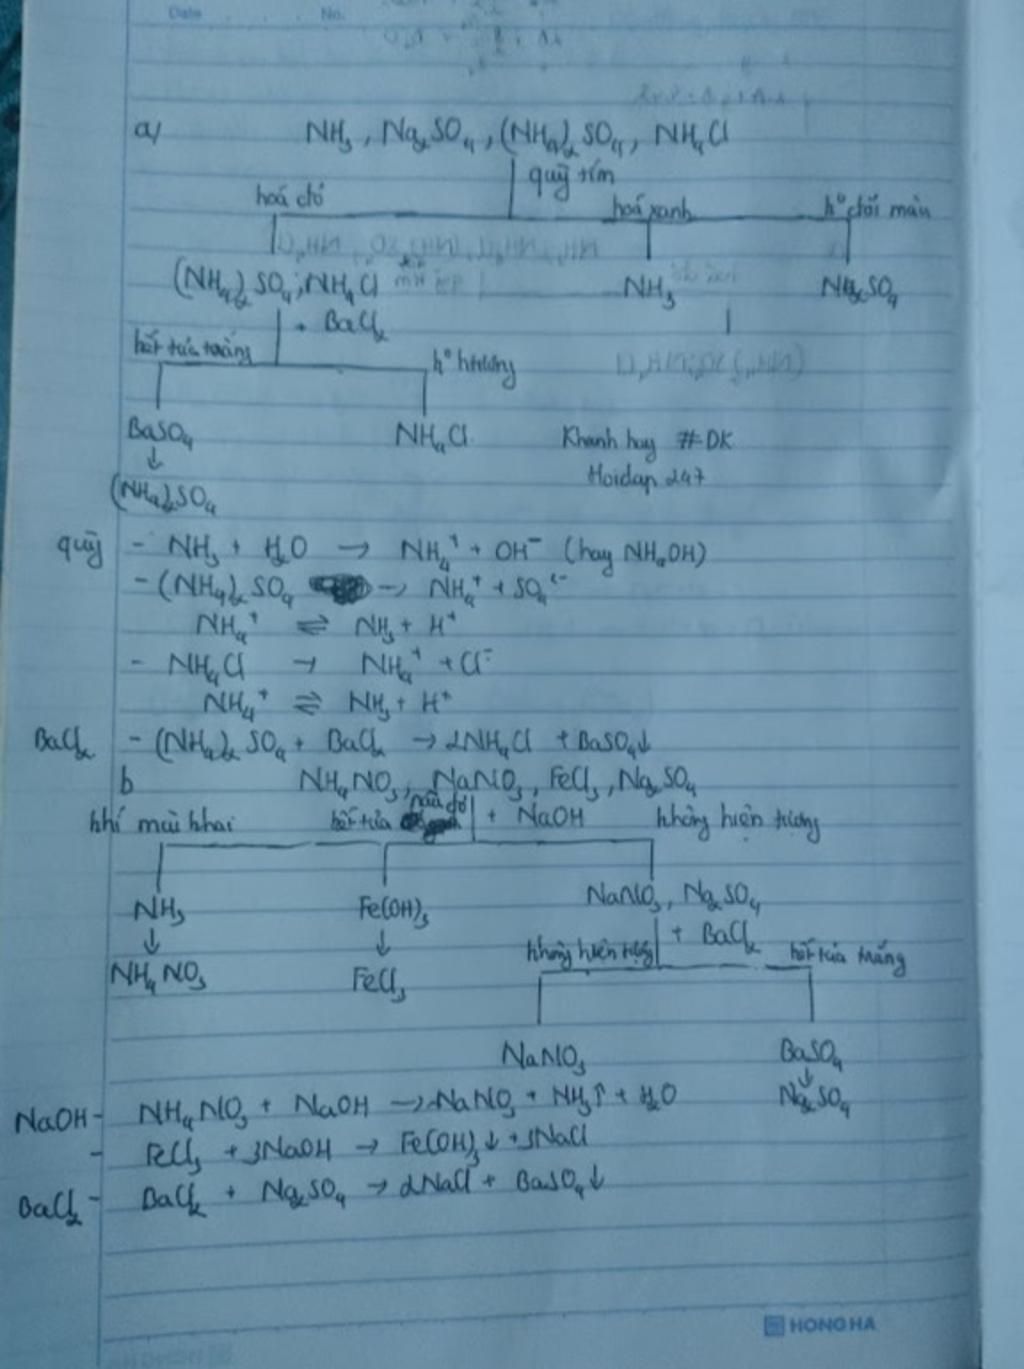 Date No.
a/ NH₃, Na₂SO₄, (NH₄)₂SO₄, NH₄Cl
quỳ tím
hoá đỏ hoá xanh k° đổi màu
(NH₄)₂SO₄; NH₄Cl NH₃ Na₂SO₄
+ BaCl₂
kết tủa trắng k° h tượng
BaSO₄ NH₄Cl Khanh huy #DK
↓ Hoidap 247
(NH₄)₂SO₄
quỳ - NH₃ + H₂O → NH₄⁺ + OH⁻ (hay NH₄OH)
- (NH₄)₂SO₄ → NH₄⁺ + SO₄²⁻
NH₄⁺ ⇌ NH₃ + H⁺
- NH₄Cl → NH₄⁺ + Cl⁻
NH₄⁺ ⇌ NH₃ + H⁺
BaCl₂ - (NH₄)₂SO₄ + BaCl₂ → 2NH₄Cl + BaSO₄↓
b NH₄NO₃, NaNO₃, FeCl₃, Na₂SO₄
khí mùi khai kết tủa nâu đỏ + NaOH không hiện tượng
NH₃ Fe(OH)₃ NaNO₃, Na₂SO₄
↓ ↓ không hiện tượng + BaCl₂ kết tủa trắng
NH₄NO₃ FeCl₃
NaNO₃ BaSO₄
↓
NaOH - NH₄NO₃ + NaOH → NaNO₃ + NH₃↑ + H₂O Na₂SO₄
- FeCl₃ + 3NaOH → Fe(OH)₃↓ + 3NaCl
BaCl₂ - BaCl₂ + Na₂SO₄ → 2NaCl + BaSO₄↓
HONG HA